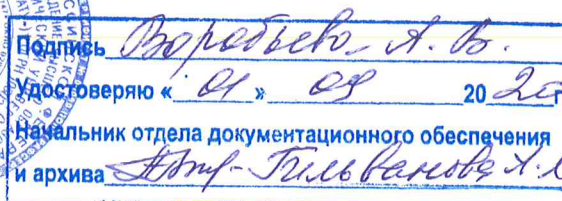 Подпись Воробьева А. В.
Удостоверяю « 01 » 09 20 г
Начальник отдела документационного обеспечения
и архива Гильванова А.А